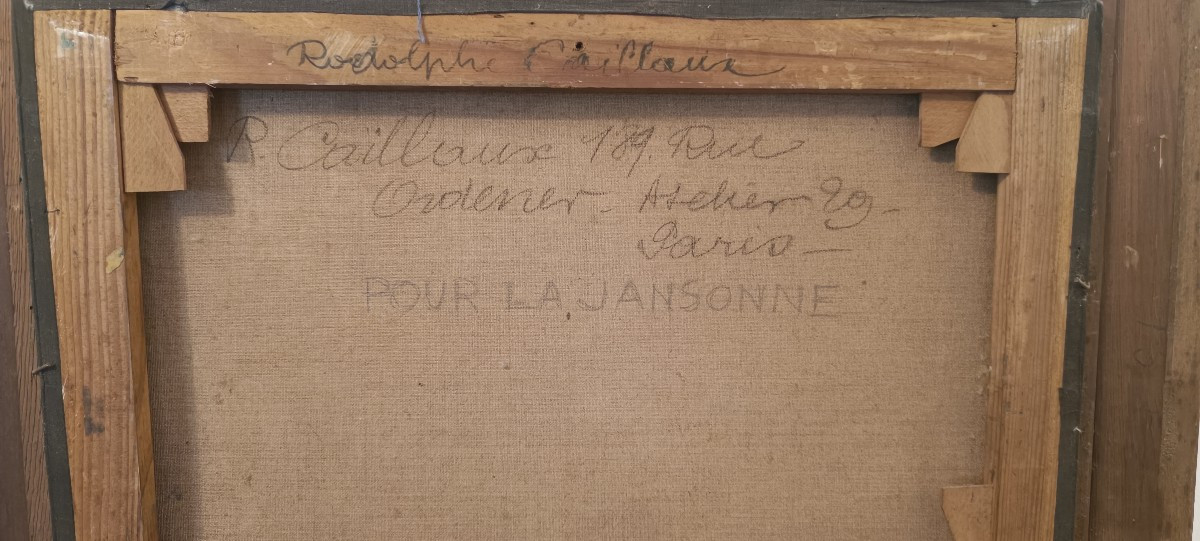 Rodolphe Caillaux
R. Caillaux 189. Rue
Ordener. Atelier 29-
Paris -
POUR LA JANSONNE